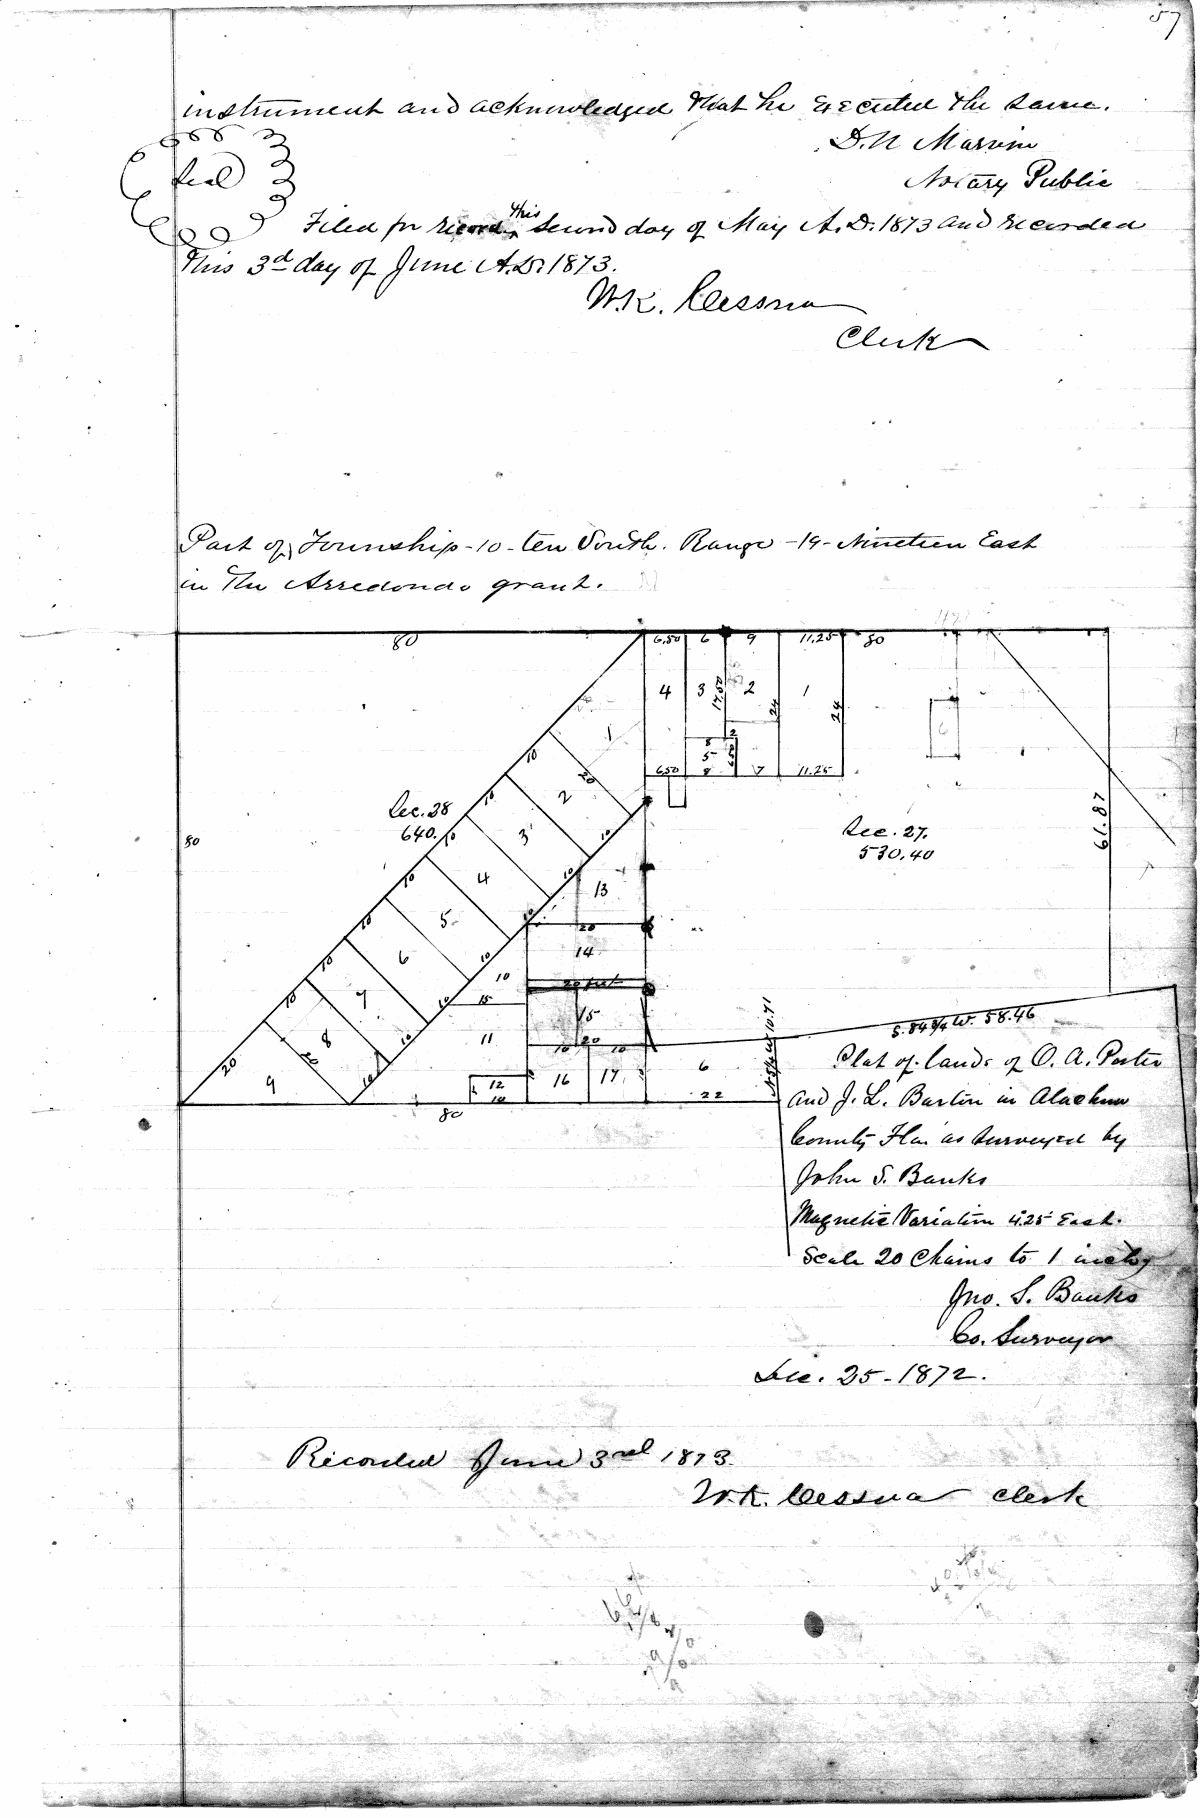 57
instrument and acknowledged that he executed the same.
D. N Marvin
Notary Public
Seal
Filed for record this Second day of May A.D. 1873 and recorded
this 3d day of June A.D. 1873.
W.K. Cessna
Clerk
Part of Township -10- ten South. Range -19- Nineteen East
in the Arredondo grant.
80
6.50 6 9 11.25 80
4 3 2 1
17.50 24 24
2
8 5 8 6.50
6.50 7 11.25
1
10 20
2
10
3
10 10
Sec. 28
640.
80
Sec. 27.
530.40
61.87
4
10 10
5
10 10
6
10 10
7
10 10
8
10 20 10
9
20
13
20
14
10
15
11
15
20
10 10
12
10
16 17
6
22
80
S. 84 3/4 W. 58.46
10.71
Plat of lands of O. A. Porter
and J. L. Barton in Alachua
County Fla as surveyed by
John S. Banks
Magnetic Variation 4.25 East.
Scale 20 Chains to 1 inch
Jno. S. Banks
Co. Surveyor
Dec. 25-1872.
Recorded June 3rd 1873.
W.K. Cessna Clerk